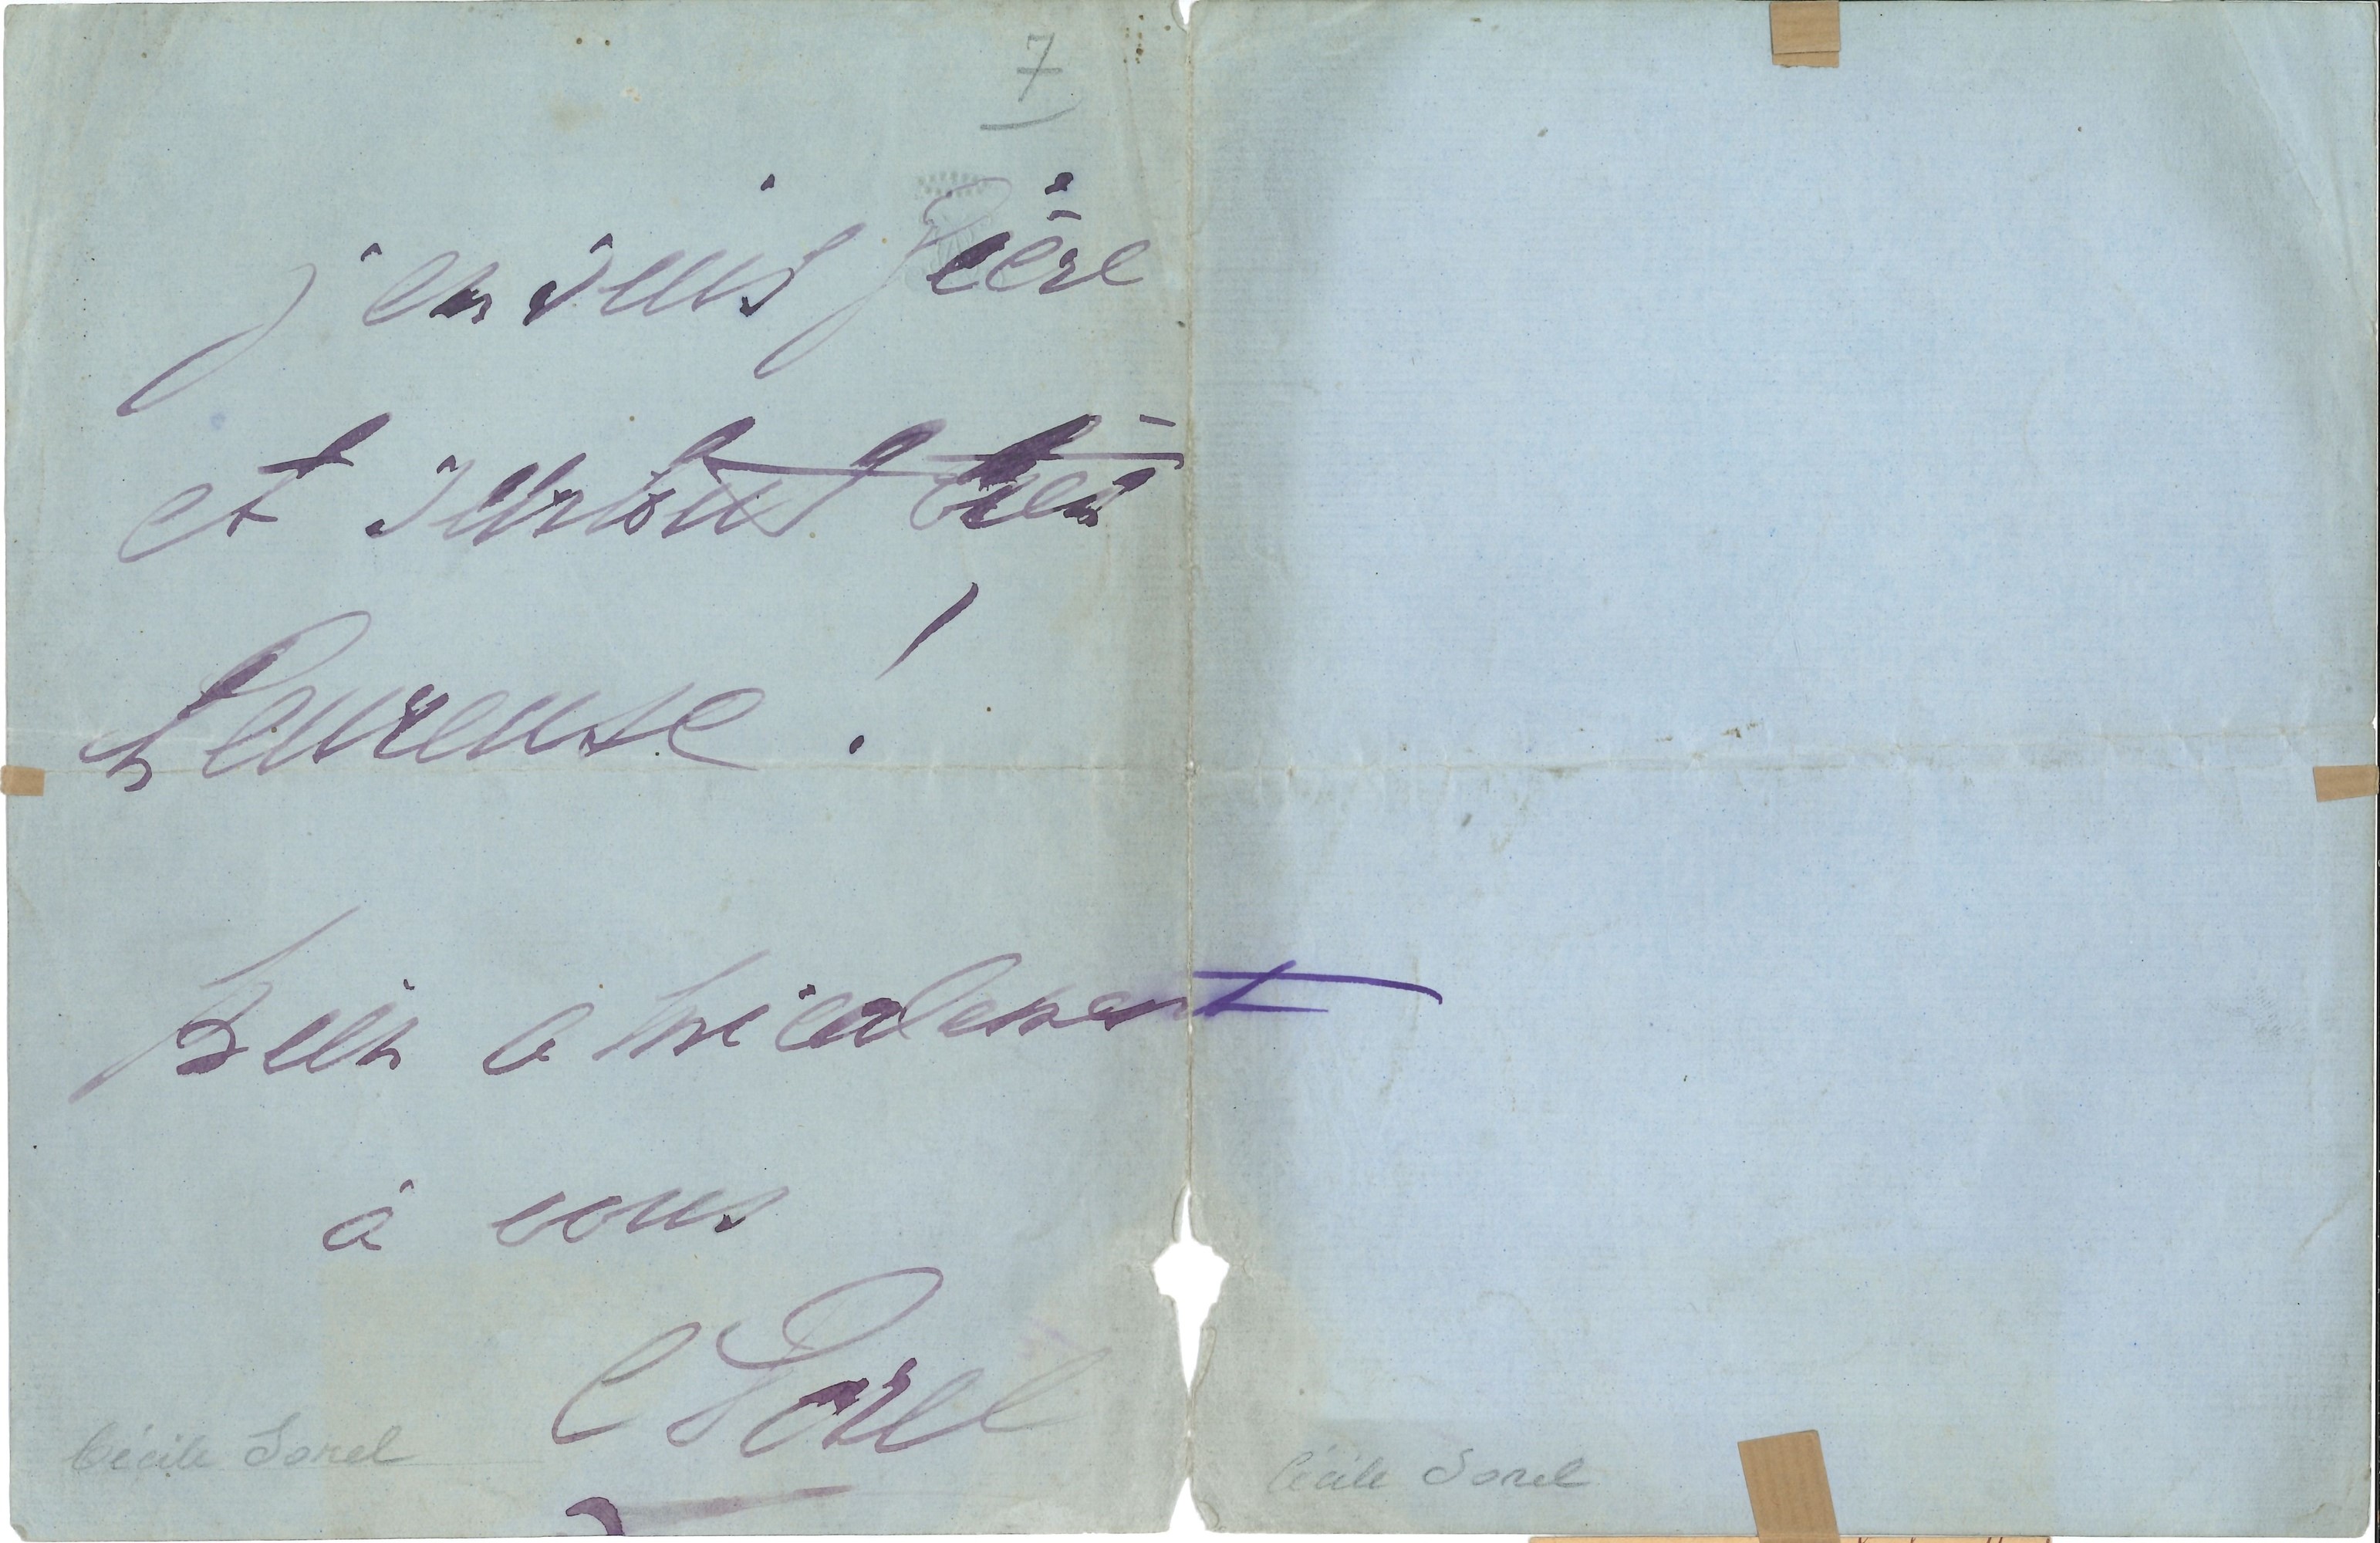 7
j'en suis fière
et surtout très
heureuse !
bien amicalement
à vous
C Sorel
Cécile Sorel
Cécile Sorel